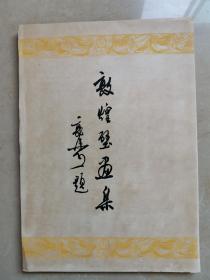 敦煌壁画集
題